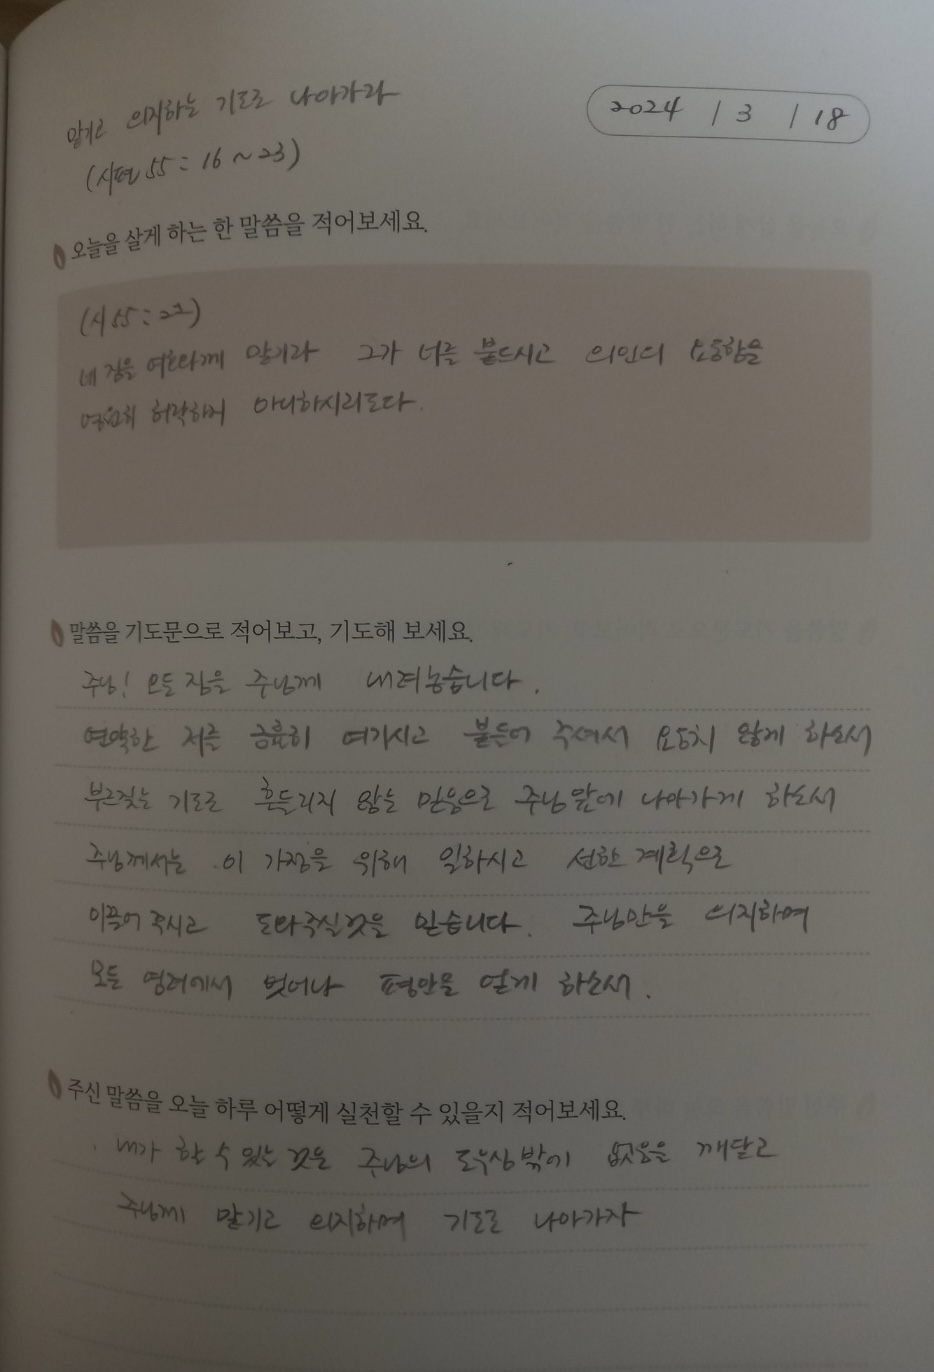 맡기고 의지하는 기도로 나아가라
2024 / 3 / 18
(시편 55 : 16 ~ 23)
오늘을 살게 하는 한 말씀을 적어보세요.
(시 55 : 22)
네 짐을 여호와께 맡기라 그가 너를 붙드시고 의인의 요동함을
영원히 허락하지 아니하시리로다.
말씀을 기도문으로 적어보고, 기도해 보세요.
주님! 모든 짐을 주님께 내려놓습니다.
연약한 저를 긍휼히 여기시고 붙들어 주셔서 요동치 않게 하소서
부르짖는 기도로 흔들리지 않는 믿음으로 주님 앞에 나아가게 하소서
주님께서는 이 가정을 위해 일하시고 선한 계획으로
이끌어 주시고 도와주실것을 믿습니다. 주님만을 의지하여
모든 염려에서 벗어나 평안을 얻게 하소서.
주신 말씀을 오늘 하루 어떻게 실천할 수 있을지 적어보세요.
내가 할 수 있는 것은 주님의 도우심밖에 없음을 깨닫고
주님께 맡기고 의지하며 기도로 나아가자